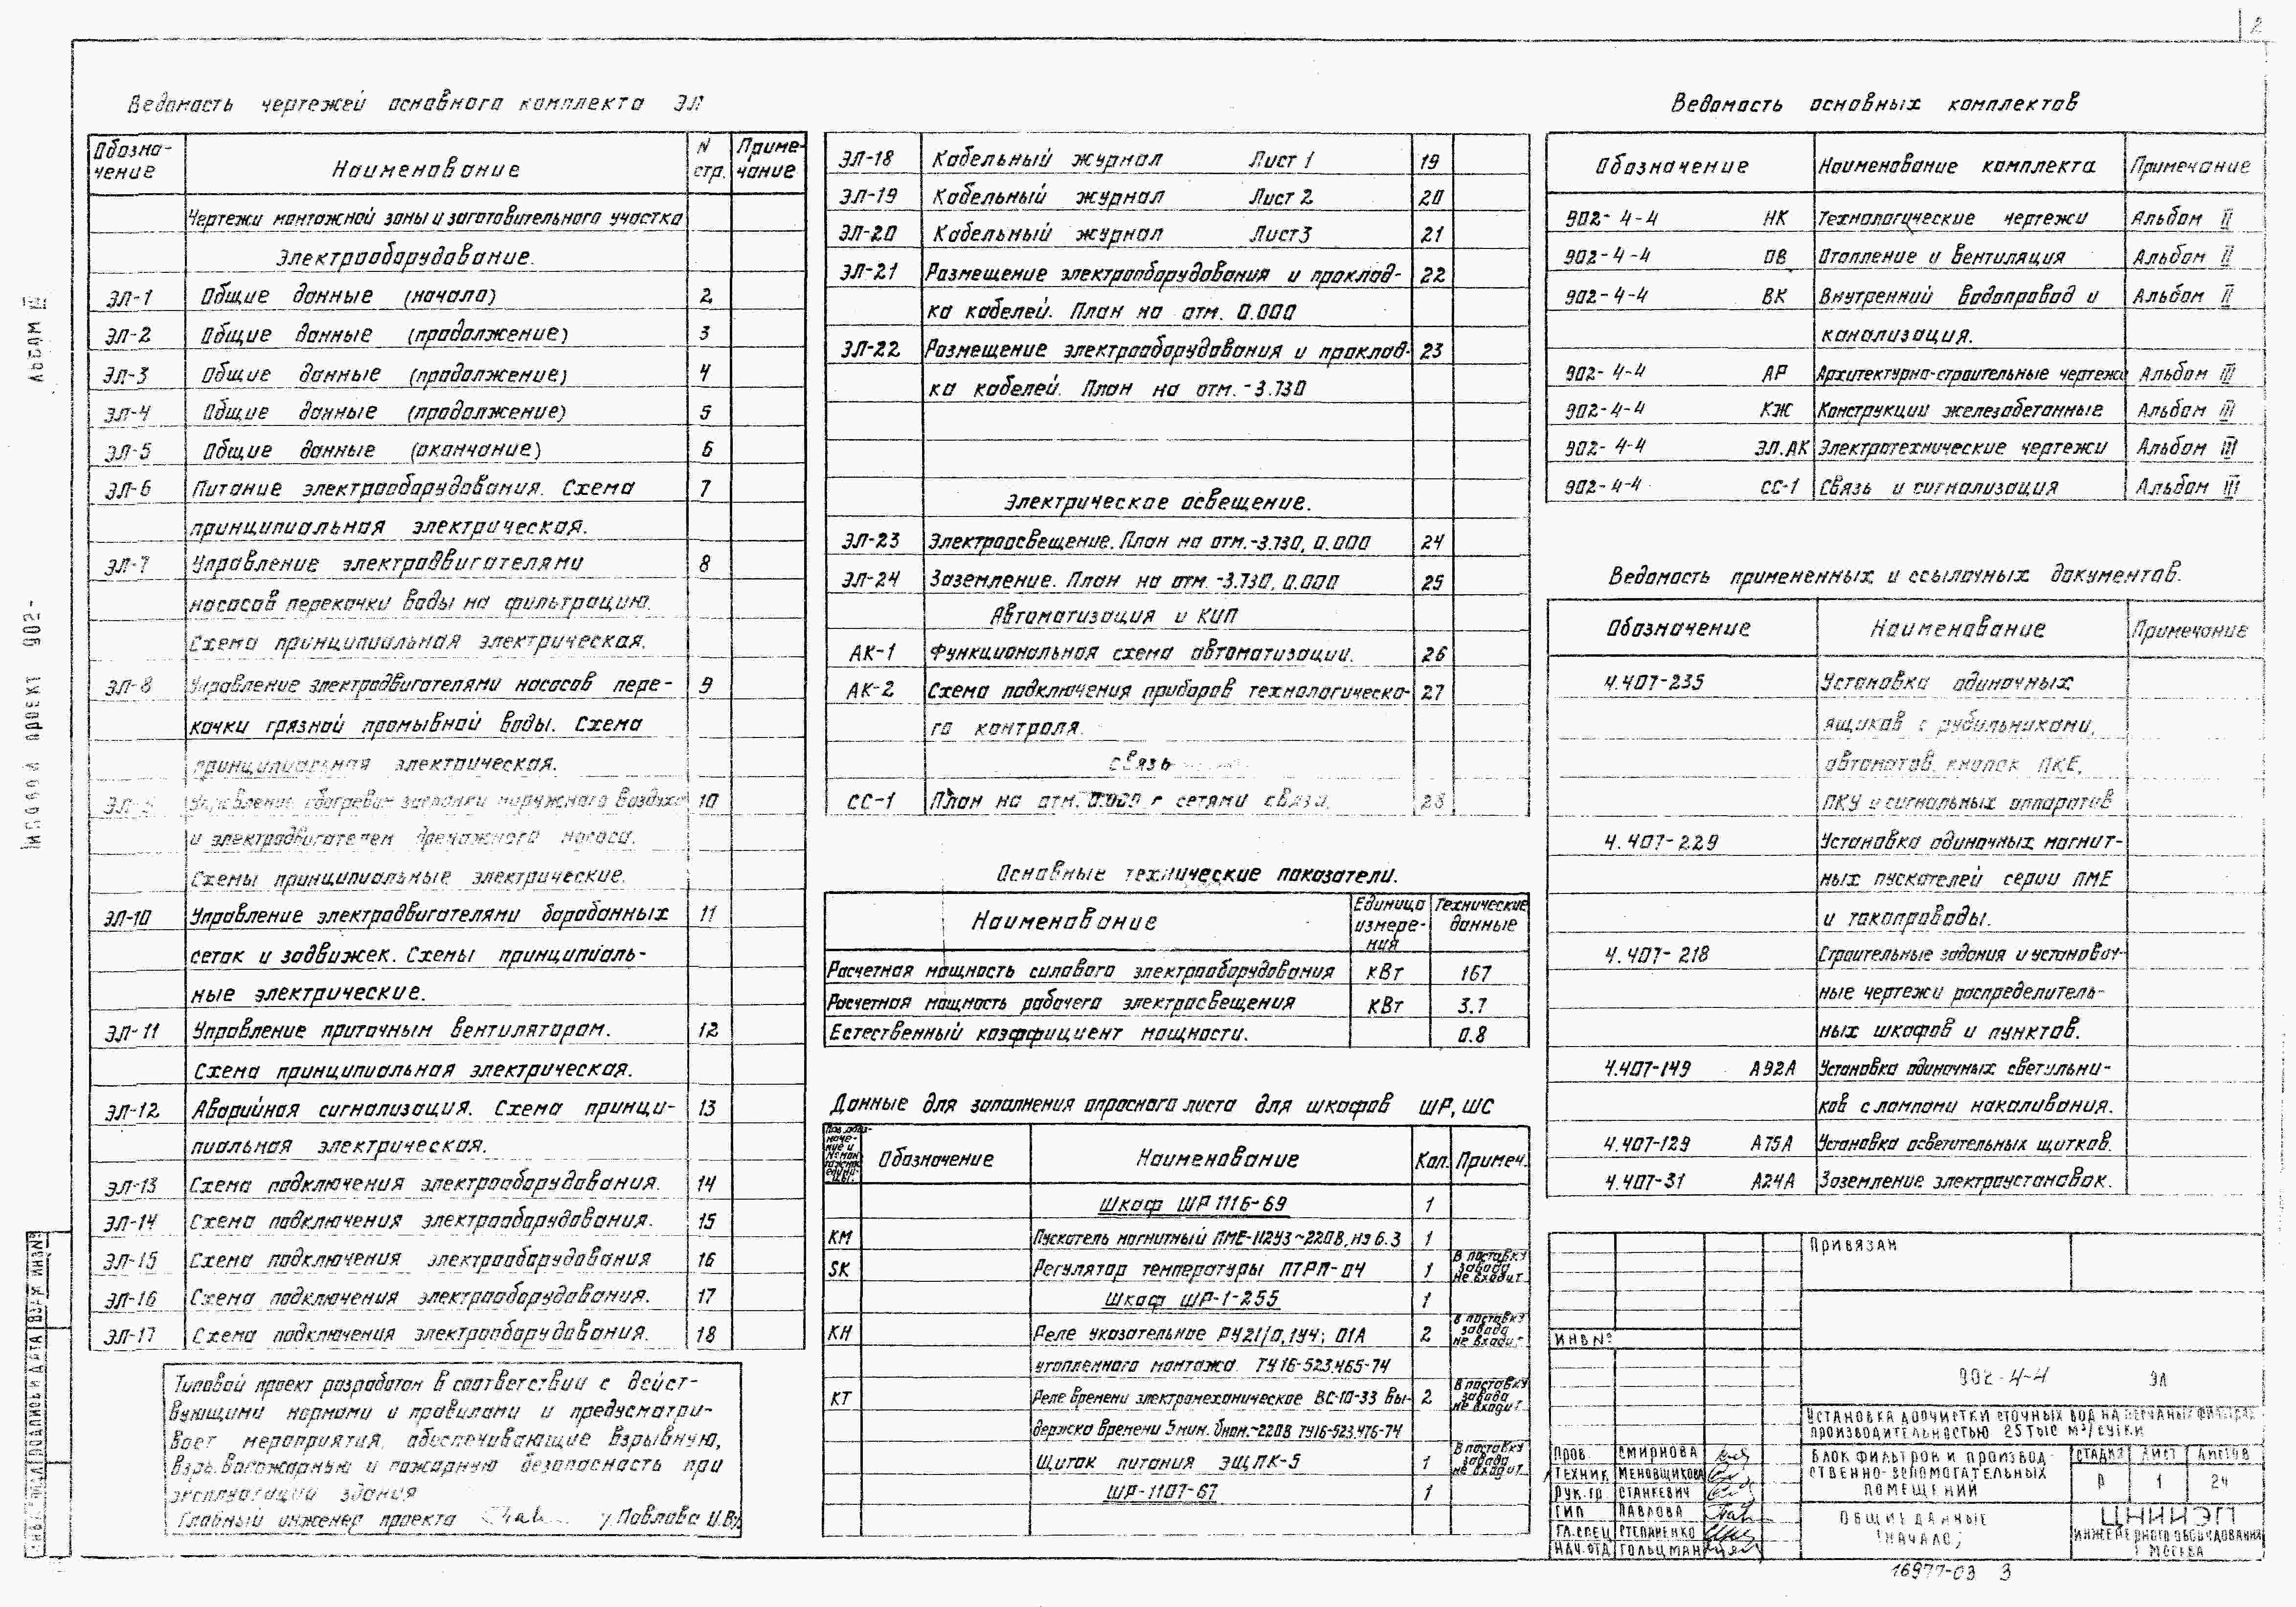 2
Ведомость чертежей основного комплекта ЭЛ
Обозна-
чение
Наименование
N
стр.
Приме-
чание
Чертежи монтажной зоны и заготовительного участка
Электрооборудование.
ЭЛ-1 Общие данные (начало) 2
ЭЛ-2 Общие данные (продолжение) 3
ЭЛ-3 Общие данные (продолжение) 4
ЭЛ-4 Общие данные (продолжение) 5
ЭЛ-5 Общие данные (окончание) 6
ЭЛ-6 Питание электрооборудования. Схема 7
принципиальная электрическая.
ЭЛ-7 Управление электродвигателями 8
насосов перекачки воды на фильтрацию.
Схема принципиальная электрическая.
ЭЛ-8 Управление электродвигателями насосов пере- 9
качки грязной промывной воды. Схема
принципиальная электрическая.
ЭЛ-9 Управление обогревом заслонки наружного воздуха 10
и электродвигателем дренажного насоса.
Схемы принципиальные электрические.
ЭЛ-10 Управление электродвигателями барабанных 11
сеток и задвижек. Схемы принципиаль-
ные электрические.
ЭЛ-11 Управление приточным вентилятором. 12
Схема принципиальная электрическая.
ЭЛ-12 Аварийная сигнализация. Схема принци- 13
пиальная электрическая.
ЭЛ-13 Схема подключения электрооборудования. 14
ЭЛ-14 Схема подключения электрооборудования. 15
ЭЛ-15 Схема подключения электрооборудования 16
ЭЛ-16 Схема подключения электрооборудования. 17
ЭЛ-17 Схема подключения электрооборудования. 18
Типовой проект разработан в соответствии с дейст-
вующими нормами и правилами и предусматри-
вает мероприятия, обеспечивающие взрывную,
взрывопожарную и пожарную безопасность при
эксплуатации здания
Главный инженер проекта Павлова
ЭЛ-18 Кабельный журнал Лист 1 19
ЭЛ-19 Кабельный журнал Лист 2 20
ЭЛ-20 Кабельный журнал Лист3 21
ЭЛ-21 Размещение электрооборудования и проклад- 22
ка кабелей. План на отм. 0.000
ЭЛ-22 Размещение электрооборудования и проклад- 23
ка кабелей. План на отм. -3.730
Электрическое освещение.
ЭЛ-23 Электроосвещение. План на отм.-3.730, 0.000 24
ЭЛ-24 Заземление. План на отм. -3.730, 0.000 25
Автоматизация и КИП
АК-1 Функциональная схема автоматизации. 26
АК-2 Схема подключения приборов технологическо- 27
го контроля.
связь
СС-1 План на отм. 0.000 с сетями связи. 28
Основные технические показатели.
Наименование
Единица
измере-
ния
Технические
данные
Расчетная мощность силового электрооборудования кВт 167
Расчетная мощность рабочего электроосвещения кВт 3.7
Естественный коэффициент мощности. 0.8
Данные для заполнения опросного листа для шкафов ШР, ШС
Обозначение Наименование Кол. Примеч.
Шкаф ШР 1116-69 1
КМ Пускатель магнитный ПМЕ-112У3~220В, нэ 6.3 1
SK Регулятор температуры ПТРП-04 1 В поставку завода не входит
Шкаф ШР-1-255 1
КН Реле указательное РУ21/0,1УЧ; 01А 2 В поставку завода не входит
утопленного монтажа. ТУ16-523.465-74
КТ Реле времени электромеханическое ВС-10-33 Вы- 2 В поставку завода не входит
держка времени 5мин. Uном.~220В ТУ16-523.476-74
Щиток питания ЭЩПК-5 1 В поставку завода не входит
ШР-1107-67 1
Ведомость основных комплектов
Обозначение Наименование комплекта Примечание
902-4-4 НК Технологические чертежи Альбом II
902-4-4 ОВ Отопление и вентиляция Альбом II
902-4-4 ВК Внутренний водопровод и Альбом II
канализация.
902-4-4 АР Архитектурно-строительные чертежи Альбом III
902-4-4 КЖ Конструкции железобетонные Альбом III
902-4-4 ЭЛ.АК Электротехнические чертежи Альбом III
902-4-4 СС-1 Связь и сигнализация Альбом III
Ведомость примененных и ссылочных документов.
Обозначение Наименование Примечание
4.407-235 Установка одиночных
ящиков с рубильниками,
автоматов, кнопок ПКЕ,
ПКУ и сигнальных аппаратов
4.407-229 Установка одиночных магнит-
ных пускателей серии ПМЕ
и токопроводы.
4.407-218 Строительные задания и установоч-
ные чертежи распределитель-
ных шкафов и пунктов.
4.407-149 А92А Установка одиночных светильни-
ков с лампами накаливания.
4.407-129 А75А Установка осветительных щитков.
4.407-31 А24А Заземление электроустановок.
Привязан
ИНВ№
902-4-4 ЭЛ
Установка доочистки сточных вод на песчаных фильтрах
производительностью 25 тыс м³/сутки
Пров. Смирнова
Техник Меновщикова
Рук. гр. Станкевич
ГИП Павлова
Гл. спец Степаненко
Нач. отд Гольцман
Блок фильтров и производ-
ственно-вспомогательных
помещений
Стадия Лист Листов
Р 1 24
Общие данные
(начало)
ЦНИИЭП
инженерного оборудования
г Москва
16977-03 3
Альбом III
Типовой проект 902-
Взам инв№
Подпись и дата